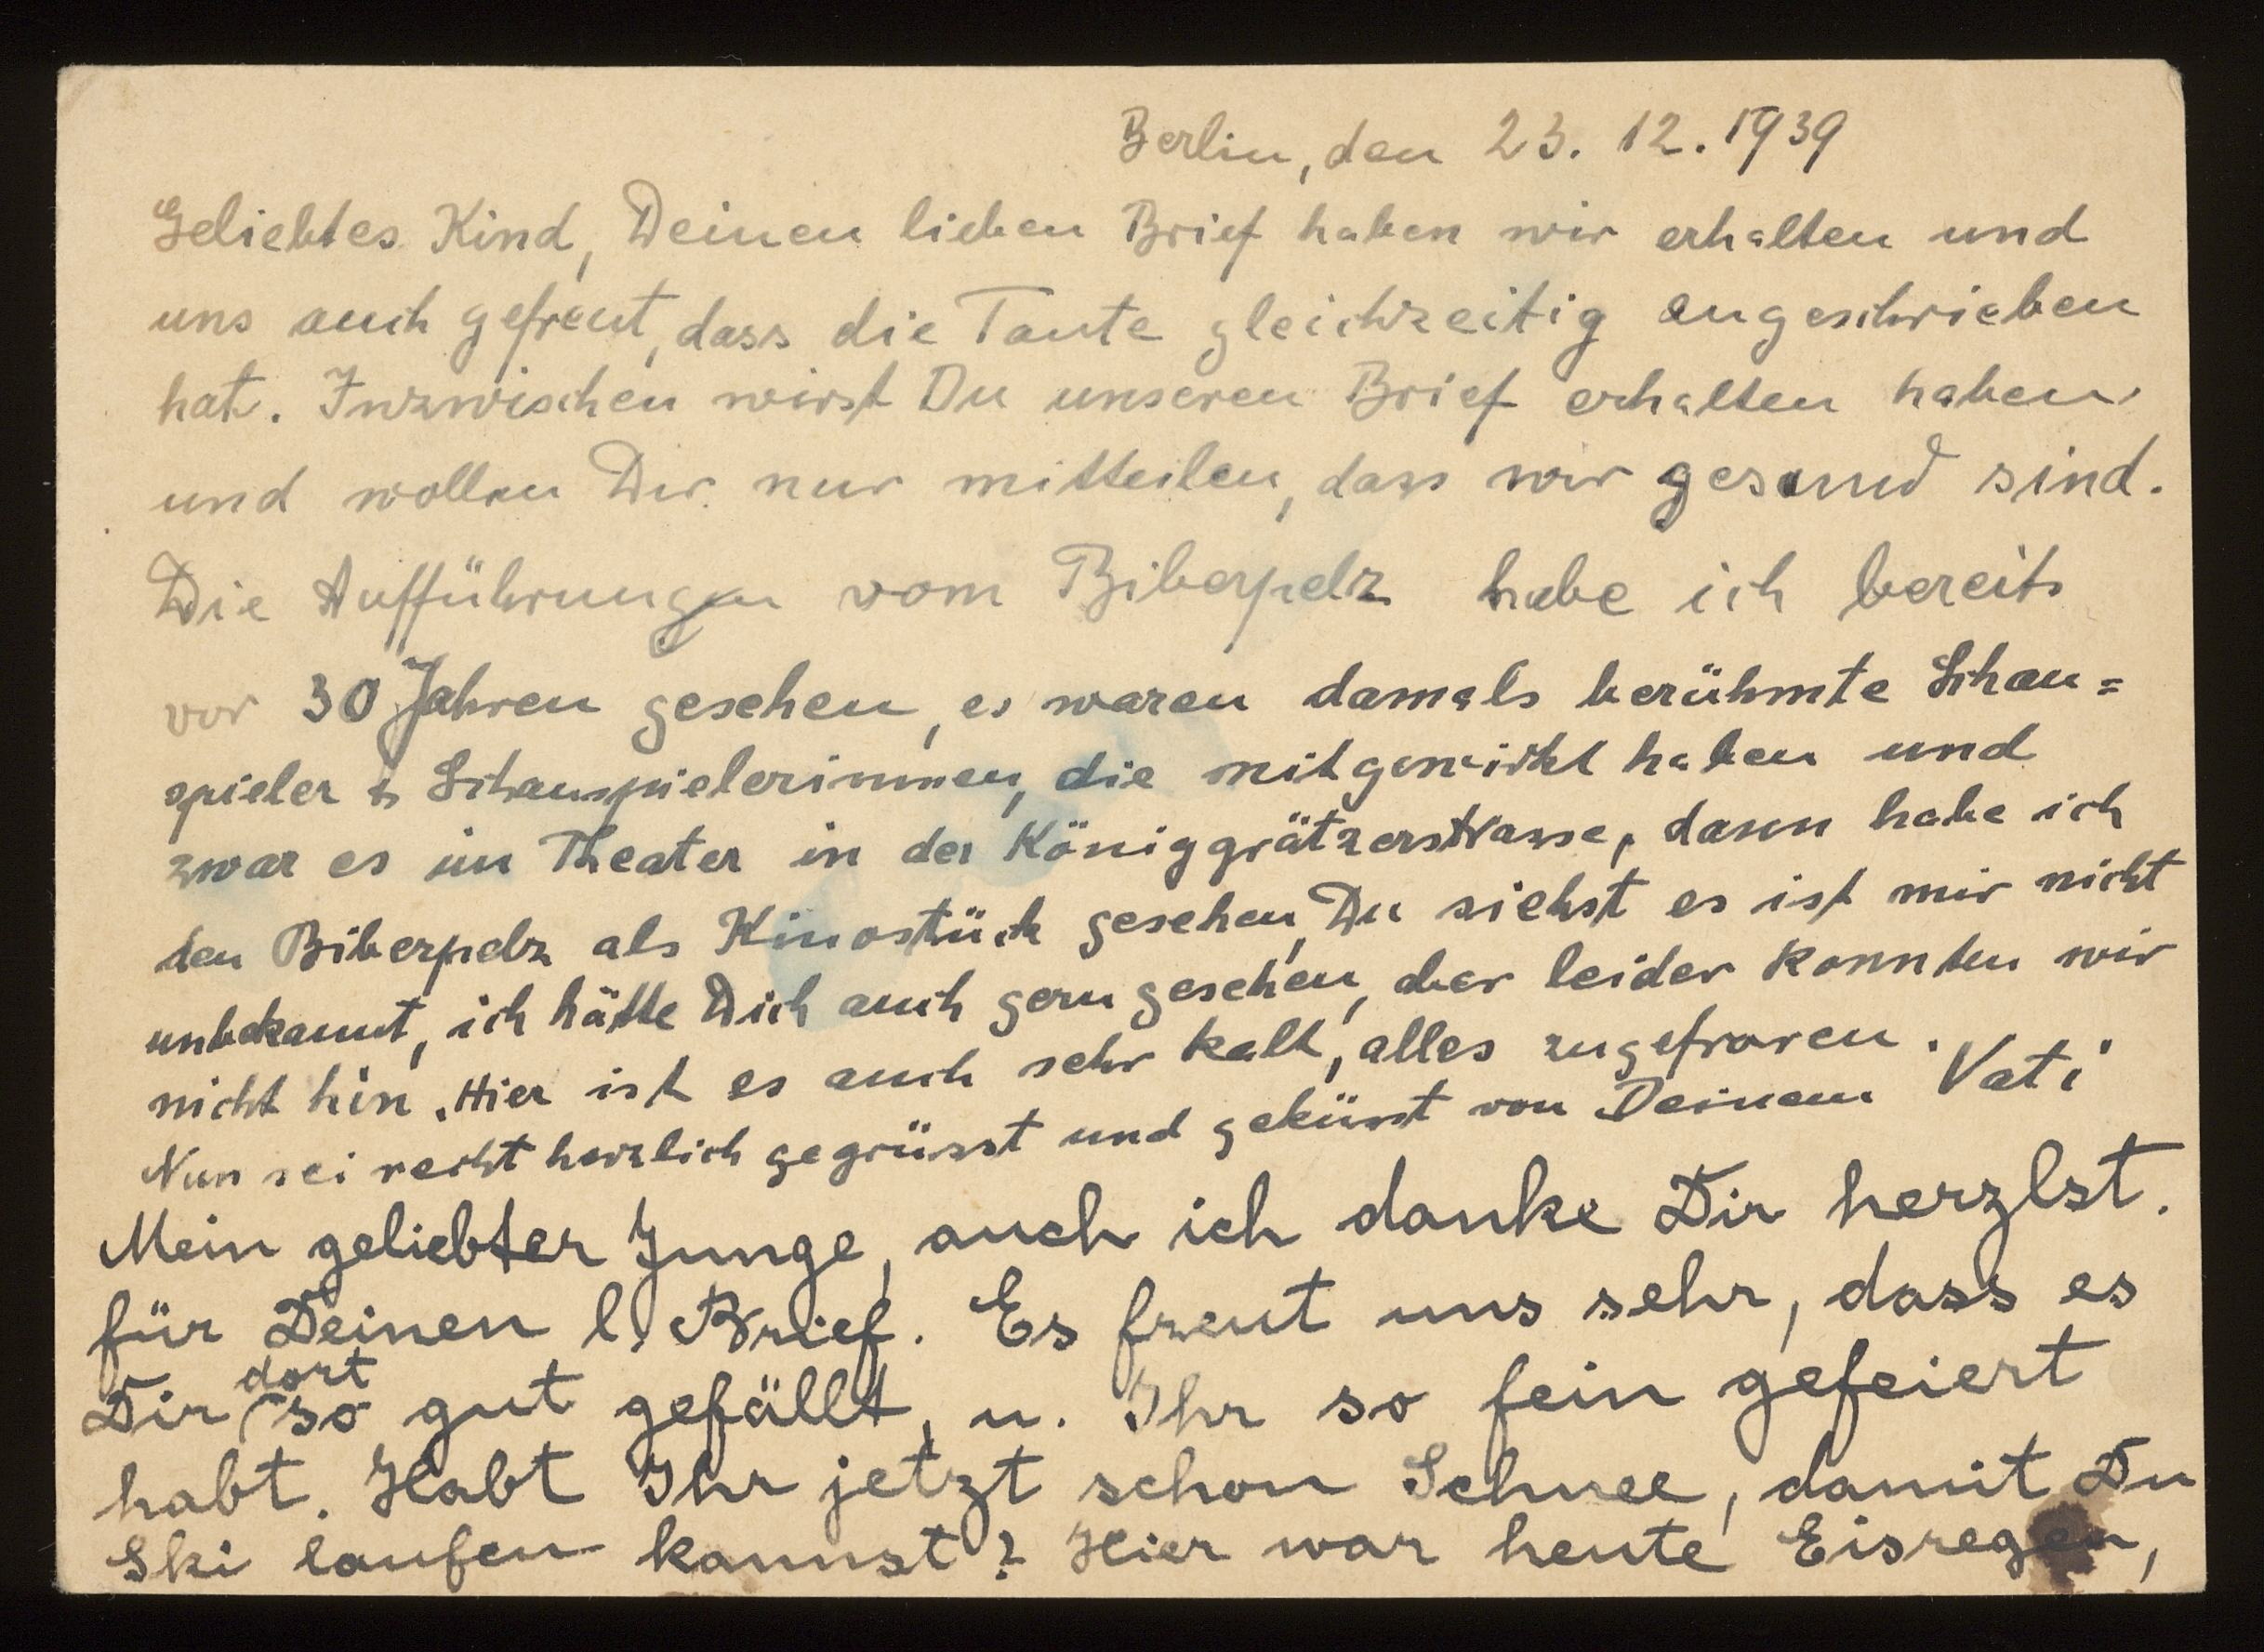 Berlin, den 23. 12. 1939
Geliebtes Kind, Deinen lieben Brief haben wir erhalten und
uns auch gefreut, dass die Tante gleichzeitig angeschrieben
hat. Inzwischen wirst Du unseren Brief erhalten haben
und wollen Dir nur mitteilen, dass wir gesund sind.
Die Aufführungen vom Biberpelz habe ich bereits
vor 30 Jahren gesehen, es waren damals berühmte Schau=
spieler & Schauspielerinnen, die mitgewirkt haben und
zwar es im Theater in der Königgrätzerstrasse, dann habe ich
den Biberpelz als Kinostück gesehen, Du siehst es ist mir nicht
unbekannt, ich hätte Dich auch gern gesehen, aber leider konnten wir
nicht hin. Hier ist es auch sehr kalt, alles zugefroren.
Nun sei recht herzlich gegrüsst und geküsst von Deinem Vati
Mein geliebter Junge, auch ich danke Dir herzlst.
für Deinen l. Brief. Es freut uns sehr, dass es
Dir dort so gut gefällt, u. Ihr so fein gefeiert
habt. Habt Ihr jetzt schon Schnee, damit Du
Ski laufen kannst? Hier war heute Eisregen,